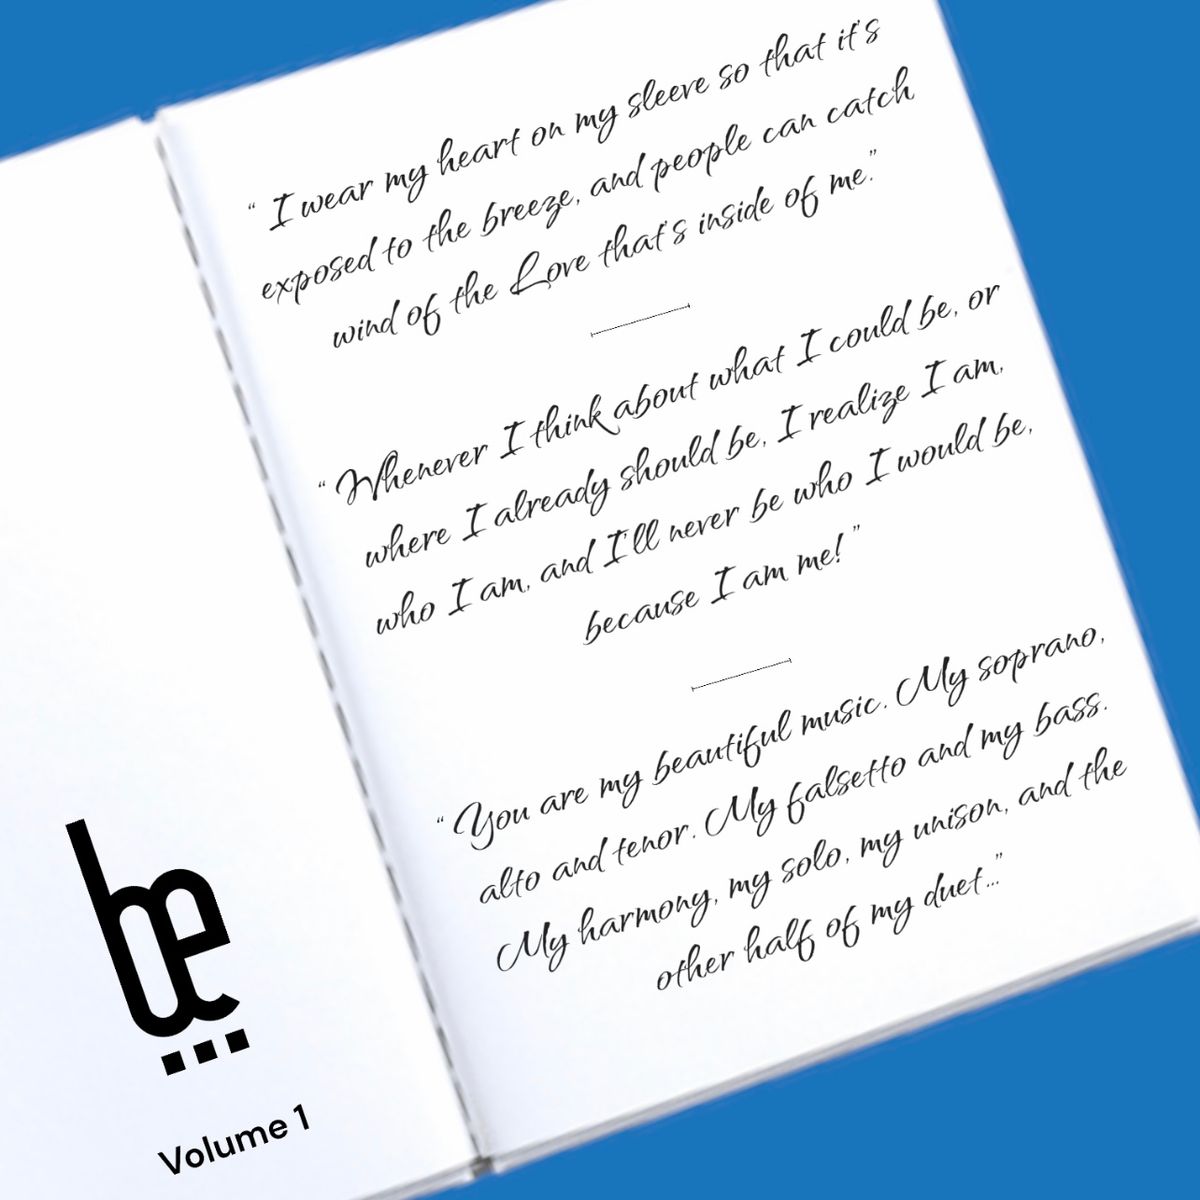 be...
Volume 1
“ I wear my heart on my sleeve so that it's
exposed to the breeze, and people can catch
wind of the Love that's inside of me.”
“ Whenever I think about what I could be, or
where I already should be, I realize I am,
who I am, and I'll never be who I would be,
because I am me! ”
“ You are my beautiful music. My soprano,
alto and tenor. My falsetto and my bass.
My harmony, my solo, my unison, and the
other half of my duet...”